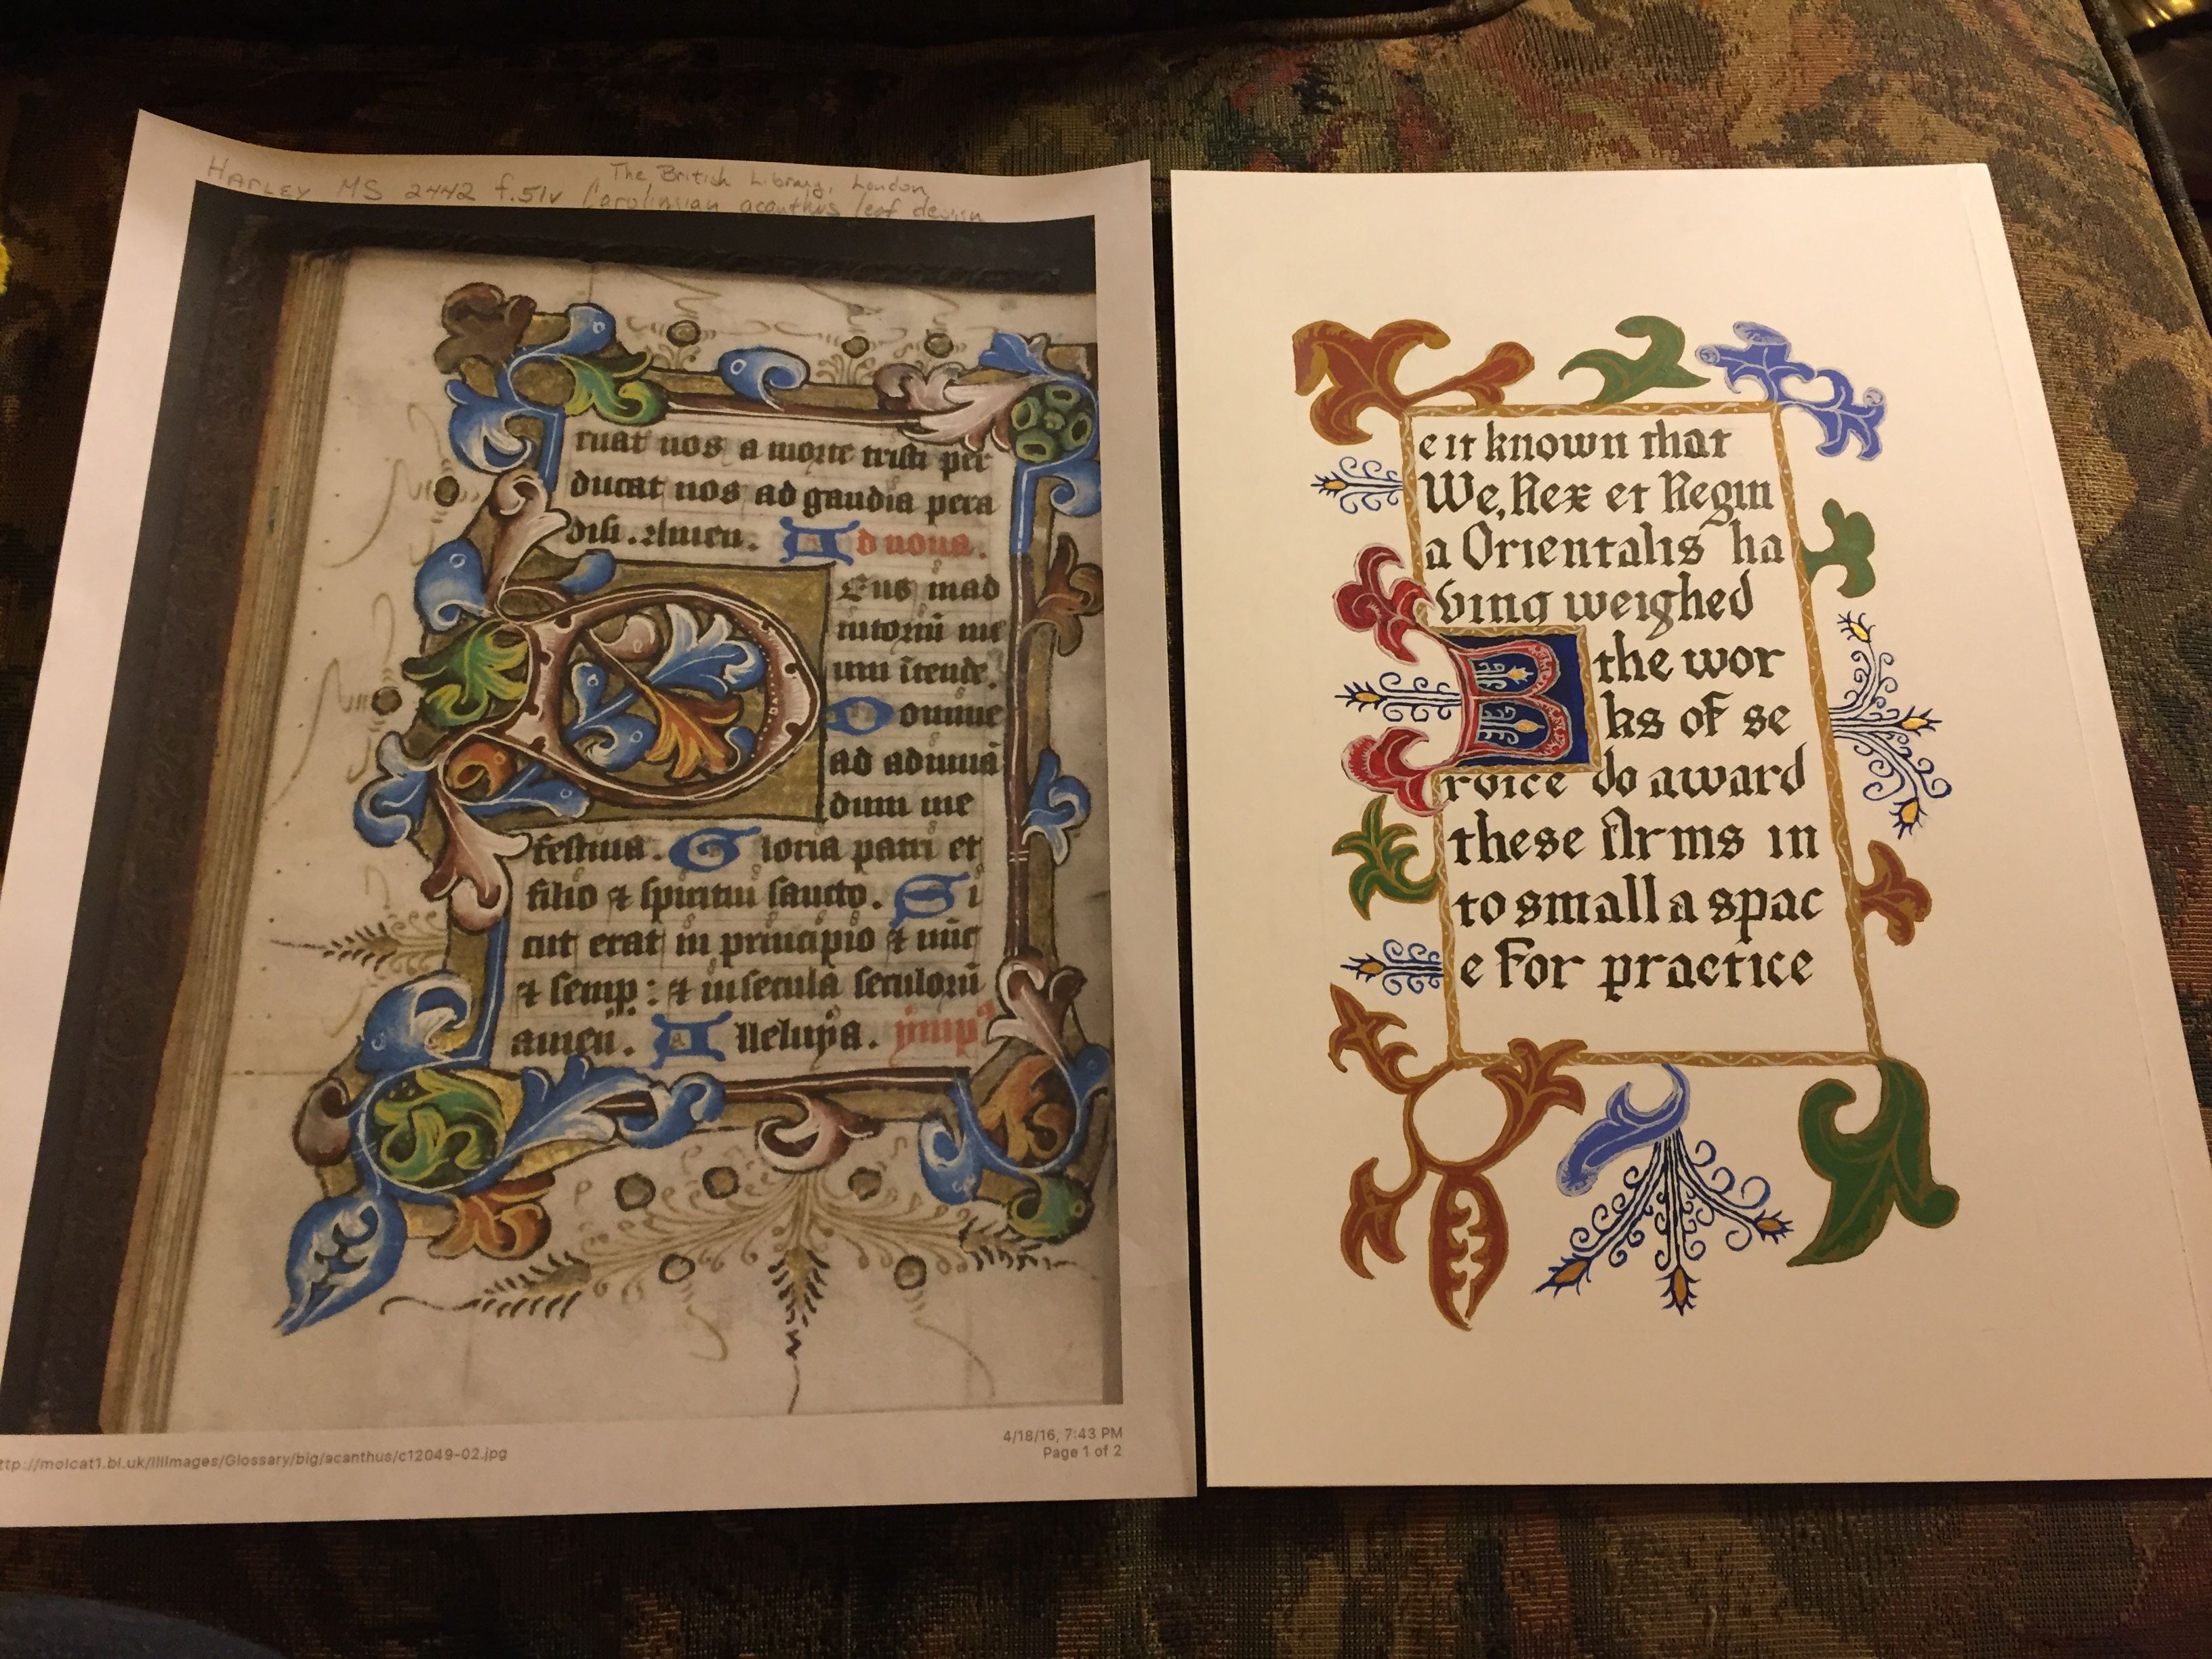 The British Library, London
HARLEY MS 2442 f.51v Carolinsian acanthus leaf design
ruat nos a morte tristi per
ducat nos ad gaudia para
disi. Amen. Ad nona.
Eus in ad
iutoriū me
um itende.
Domine
ad adiuuā
dum me
festina. Gloria patri et
filio ⁊ spiritui sancto. Si
cut erat in principio ⁊ nūc
⁊ semp: ⁊ in secula seculorū
amen. Alleluya. ymp
4/18/16, 7:43 PM
ttp://molcat1.bl.uk/IllImages/Glossary/big/acanthus/c12049-02.jpg
Page 1 of 2
e it known that
We, Rex et Regin
a Orientalis ha
ving weighed
B the wor
ks of se
rvice do award
these Arms in
to small a spac
e For practice